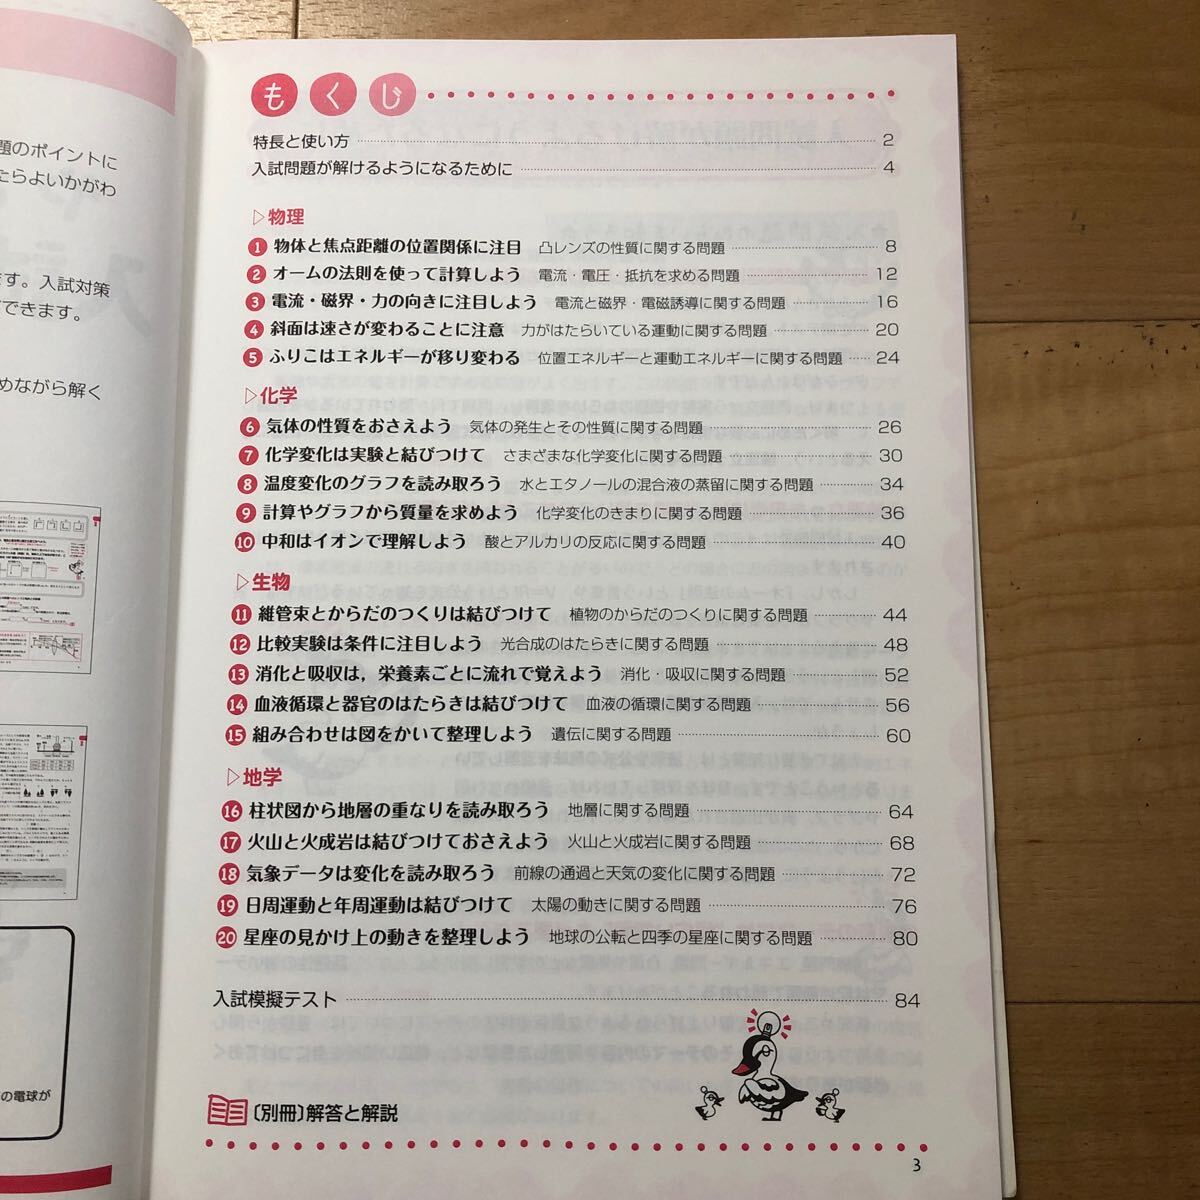 題のポイントに
たらよいかがわ
ます。入試対策
できます。
めながら解く
の電球が
もくじ
特長と使い方 2
入試問題が解けるようになるために 4
▷物理
1 物体と焦点距離の位置関係に注目 凸レンズの性質に関する問題 8
2 オームの法則を使って計算しよう 電流・電圧・抵抗を求める問題 12
3 電流・磁界・力の向きに注目しよう 電流と磁界・電磁誘導に関する問題 16
4 斜面は速さが変わることに注意 力がはたらいている運動に関する問題 20
5 ふりこはエネルギーが移り変わる 位置エネルギーと運動エネルギーに関する問題 24
▷化学
6 気体の性質をおさえよう 気体の発生とその性質に関する問題 26
7 化学変化は実験と結びつけて さまざまな化学変化に関する問題 30
8 温度変化のグラフを読み取ろう 水とエタノールの混合液の蒸留に関する問題 34
9 計算やグラフから質量を求めよう 化学変化のきまりに関する問題 36
10 中和はイオンで理解しよう 酸とアルカリの反応に関する問題 40
▷生物
11 維管束とからだのつくりは結びつけて 植物のからだのつくりに関する問題 44
12 比較実験は条件に注目しよう 光合成のはたらきに関する問題 48
13 消化と吸収は，栄養素ごとに流れで覚えよう 消化・吸収に関する問題 52
14 血液循環と器官のはたらきは結びつけて 血液の循環に関する問題 56
15 組み合わせは図をかいて整理しよう 遺伝に関する問題 60
▷地学
16 柱状図から地層の重なりを読み取ろう 地層に関する問題 64
17 火山と火成岩は結びつけておさえよう 火山と火成岩に関する問題 68
18 気象データは変化を読み取ろう 前線の通過と天気の変化に関する問題 72
19 日周運動と年周運動は結びつけて 太陽の動きに関する問題 76
20 星座の見かけ上の動きを整理しよう 地球の公転と四季の星座に関する問題 80
入試模擬テスト 84
〔別冊〕解答と解説
3